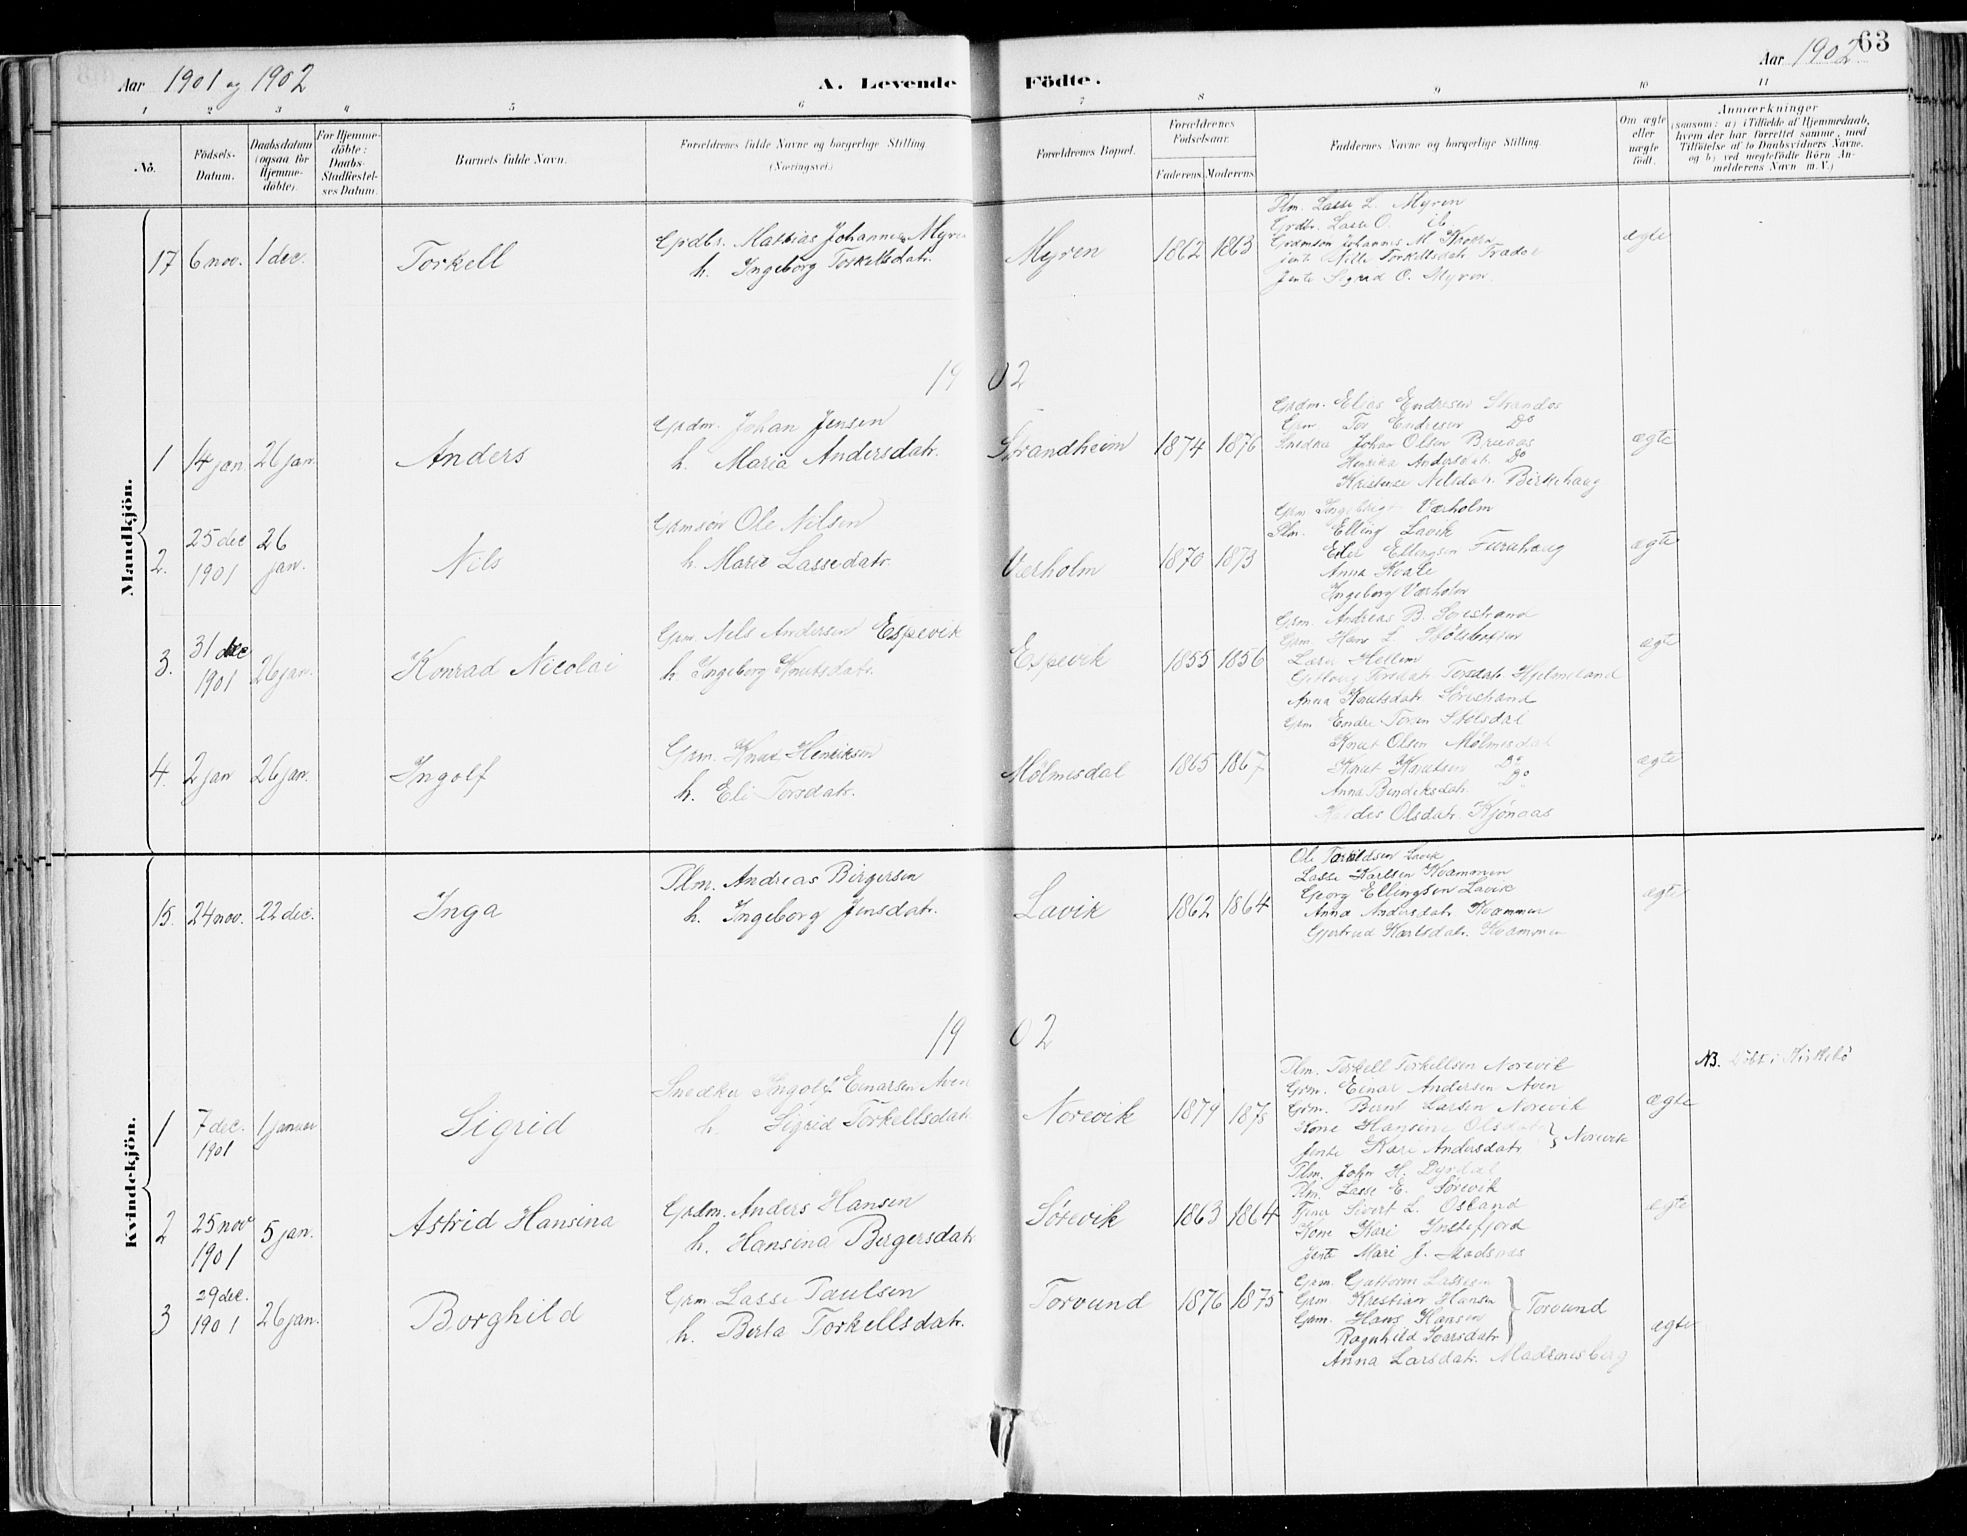 Aar 1901 og 1902
A. Levende Födte.
Aar 1902
63
1 2 3 4 5 6 7 8 9 10 11
No.
Födsels-Datum.
Daabsdatum (ogsaa for Hjemmedöbte).
For Hjemmedöbte: Daabs-Stadfæstelses Datum.
Barnets fulde Navn.
Forældrenes fulde Navne og borgerlige Stilling (Næringsvei.)
Forældrenes Bopæl.
Forældrenes Födselsaar.
Faderens Moderens
Faddernes Navne og borgerlige Stilling.
Om ægte eller uægte födt.
Anmærkninger
(saasom: a) i Tilfælde af Hjemmedaab, hvem der har forrettet samme, med Tilföielse af to Daabsvidners Navne, og b) ved uægtefödte Börn Anmelderens Navn m.V.)
Mandkjön.
17 6 nov. 1 dec. Torkell
Grdbr. Mathias Johannes Myren
h. Ingeborg Torkellsdatr.
Myren 1862 1863
Plm. Lasse L. Myren
Grdbr. Lasse O. ib
Grdmson Johannes M.
jente Torkellsdatr.
Jente Sigrid O. Myren.
ægte
1902
1 14 jan. 26 jan. Anders
Grdm. Johan Jensen
h. Maria Andersdatr.
Strandheim 1874 1876
Grdm. Elias Endresen
Grm Tor Endresen Do
Snedker Johan Olsen
Andersdatr. Do
Nilsdatr. Birkehaug
ægte
2. 25 dec 1901 26 jan. Nils
Grmsön Ole Nilsen
h. Marie Lassedatr.
Værholm 1870 1873
Grm Værholm
Plm. Elling Lavik
Ellingsen Furuhaug
Anna
Ingeborg Værholm
ægte
3. 31 dec 1901 26 jan. Konrad Nicolai
Grm. Nils Andersen Espevik
h. Ingeborg Knutsdatr.
Espevik 1855 1856
Grm. Andreas B. Sörestrand
Grm. Hans L.
Hellem
Torsdatr. Hjelmeland
Anna Knutsdatr. Sörestrand
ægte
4. 2 jan 26 jan. Ingolf
Grm. Knut Henriksen
h. Eli Torsdatr.
Mölmesdal 1865 1867
Grm Endre Stölsdal
Knut Olsen Mölmesdal
Knut Knutsen Do
Anna Bendiksdatr. Do
Olsdatr. Kjönaas
ægte
Kvindekjön.
15. 24 nov. 22 dec. Inga
Plm. Andreas Birgersen
h. Ingeborg Jensdatr.
Lavik 1862 1864
Ole Lavik
Lasse Karlsen Kvammen
Georg Ellingsen Lavik
Anna Andersdatr. Kvammen
Gjertrud Karlsdatr. Kvammen
ægte
1902
1 7 dec. 1901 1 januar Sigrid
Snedker Ingolf Einarsen Aven
h. Sigrid Torkellsdatr
Norevik 1879 1875
Plm. Torkell Torkellsen Norevik
Grm. Einar Andersen Aven
Grm. Bernt Larsen Norevik
Kone Hansine Olsdatr
Jente Kari Andersdatr } Norevik
ægte
NB. Döbt i Kirkebö
2 25 nov 1901 5 jan. Astrid Hansina
Grdm. Anders Hansen
h. Hansina Bergersdatr
Sörevik 1863 1864
Plm. John H. Dyrdal
Plm. Lasse E. Sörevik
Sivert L. Osland
Kone Kari Instefjord
Jente Mari J. Madsnes
ægte
3 29 dec. 1901 26 jan. Borghild
Grm. Lasse Paulsen
h. Berta Torkellsdatr.
Torvund 1876 1875
Grm. Guttorm Lassesen
Grm. Kristian Hansen
Grm. Hans Hansen
Ragnhild Ivarsdatr } Torvund
Anna Larsdatr.
ægte